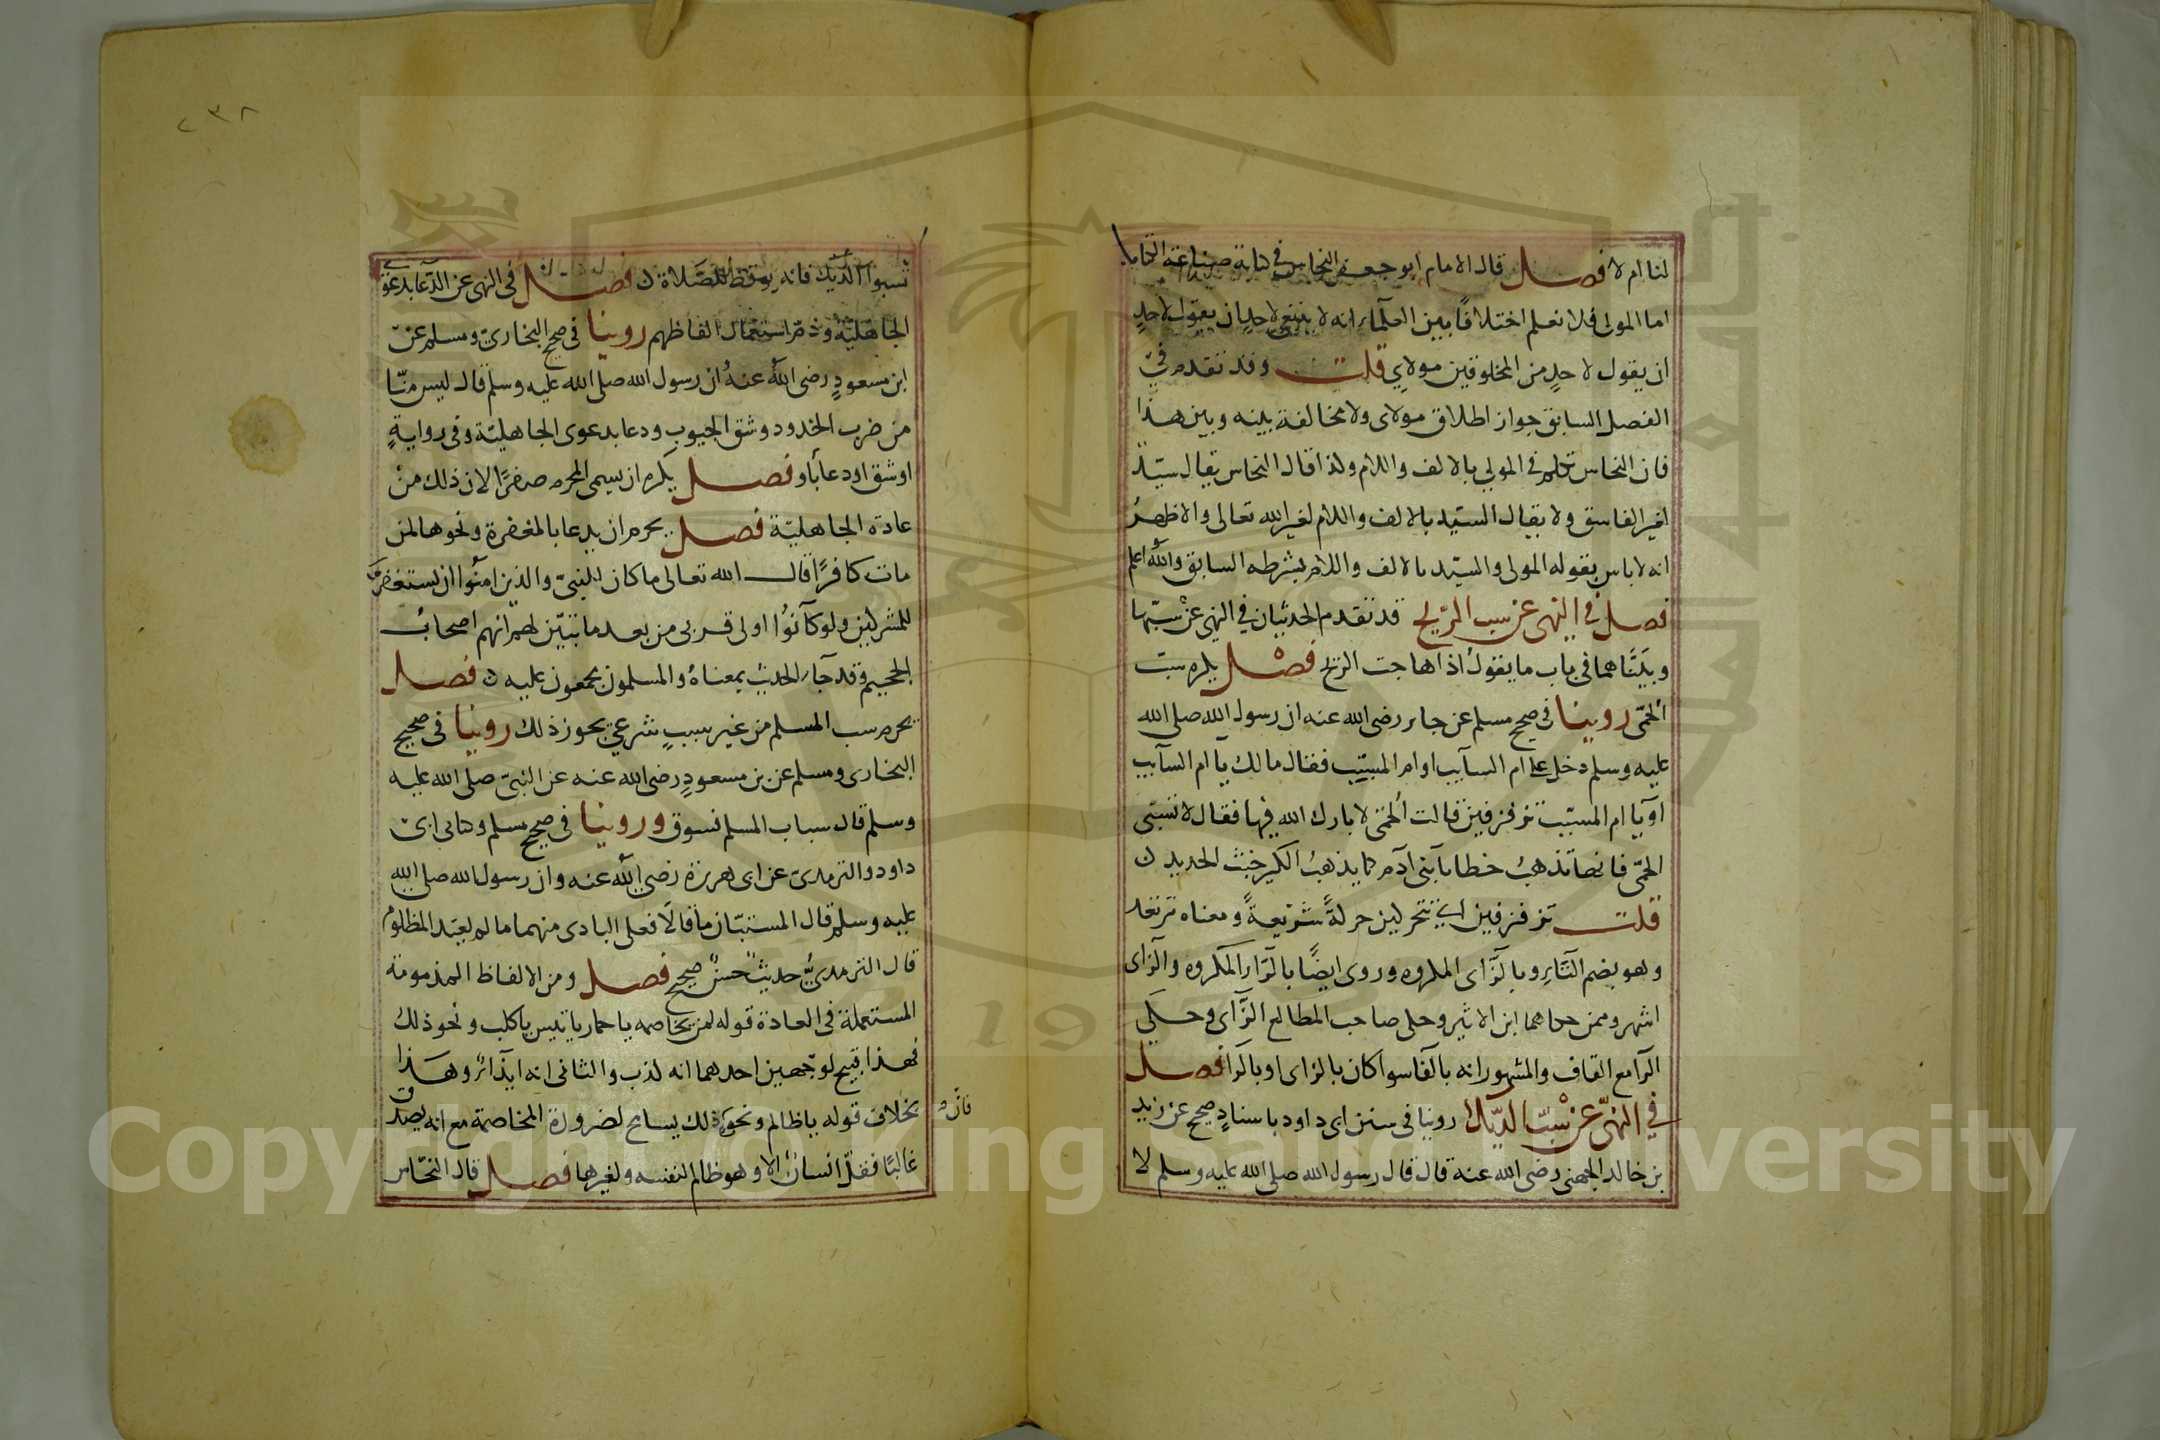 لنا ام لا فصل قال الامام ابو جعفر النحاس في كتابه صناعة الكتاب
اما المولى فلا نعلم اختلافًا بين العلماء انه لا ينبغي لاحد ان يقول لاحدٍ
ان يقول لاحدٍ من المخلوقين مولاي قلت وقد تقدم في
الفصل السابق جواز اطلاق مولاى ولا مخالفة بينه وبين هذا
فان النحاس تكلم في المولي بالالف واللام ولذا قال النحاس يقال سيّد
لغير الفاسق ولا يقال السيّد بالالف واللام لغير الله تعالى والاظهرُ
انه لا باس بقوله المولى والسيّد بالالف واللام بشرطه السابق والله اعلم
فصل في النهى عن سب الرّيح قد تقدم الحديثان في النهى عنْ سبّها
وبيَنّاهما في باب ما يقولُ اذا هاجت الريح فصْل يكره سبّ
الحُمّى روينا فى صحيح مسلم عن جابر رضى الله عنه ان رسول الله صلى الله
عليه وسلم دخل على ام السآيب او ام المسيّب فقال مالك يآ ام السآيب
اويآ ام المسيّب تزفزفين قالت الحُمّى لا بارك الله فيها فقال لا تسبّى
الحمّى فانها تذهبُ خطايآ بنى آدم كما يذهبُ الكير خبث الحديد ن
قلت تزفزفين اي تتحركين حركةً سَريعةً ومعناه ترتعد
وهو بضم التّآءِ وبالزّاى المكرره وروى ايضًا بالرّاءِ المكرره والزاى
اشهر وممن حكاهما ابن الاثير وحكى صاحب المطالع الزّاى وحكَي
الرآ مع القاف والمشهور انه بالفآ سوا كان بالزاى او بالرا فصل
في النهيّ عن سبّ الديّك روينا فى سنن ابى داود باسنادٍ صحيح عن زيد
بن خالد الجهنى رضى الله عنه قال قال رسول الله صلى الله عليه وسلم لا
٢٣٨
تسبوا الدّيك فانه يوقظ للصّلاة ن فصل فى النهى عن الدّعآ بدعوَي
الجاهليّة وذمّ استعمال الفاظهم روينا فى صحيح البخاريّ ومسلم عن
ابن مسعودٍ رضى الله عنهُ ان رسول الله صلى الله عليه وسلم قال ليس منّا
من ضرب الخدود وشق الجيوب ودعا بدعوى الجاهليّة وفى روايةٍ
او شق او دعا بأو فصل يكره ان يسمى المحرم صفرًا لان ذلك منْ
عادة الجاهليّة فصل يحرم ان يدعا بالمغفرة ونحوها لمن
مات كافرًا قال الله تعالى ما كان للنبيّ والذين امنُوا ان يستغفروا
للمشركين ولو كآنوُا اولى قربى من بعد ما تبيّن لهم انهم اصحابُ
الجحيم وقد جآء الحديث بمعناهُ والمسلمون مجمعون عليه ن فصل
يحرم سب المسلم من غير سببٍ شرعيّ يجوز ذلك روينا فى صحيح
البخارى ومسلم عن بن مسعودٍ رضى الله عنه عن النبيّ صلى الله عليه
وسلم قال سباب المسلم فسوق وروينا فى صحيح مسلم وكتابى ابى
داود والترمذيّ عن ابى هريرة رضى الله عنه وان رسول الله صلى الله
عليه وسلم قال المستبّان ما قالَا فعلى البادى منهما ما لم يعتد المظلوم
قال الترمذىُّ حديث حسن صحيح فصل ومن الالفاظ المذمومة
المستعملة فى العادة قوله لمن يخاصمه يا حمار يا تيس يا كلب ونحو ذلك
فهذا قبيح لوجهين احدهما انه كذب والثانى انه ايذآءٌ وهَذا
بخلاف قوله يا ظالم ونحوَ ذلك يسامح لضرورة المخاصمة مع انه يصدق
فان
غالبًا فقلّ انسانٌ الا وهو ظالم لنفسه ولغيرها فصل قال النحّاس
Copyright © King Saud University
1957